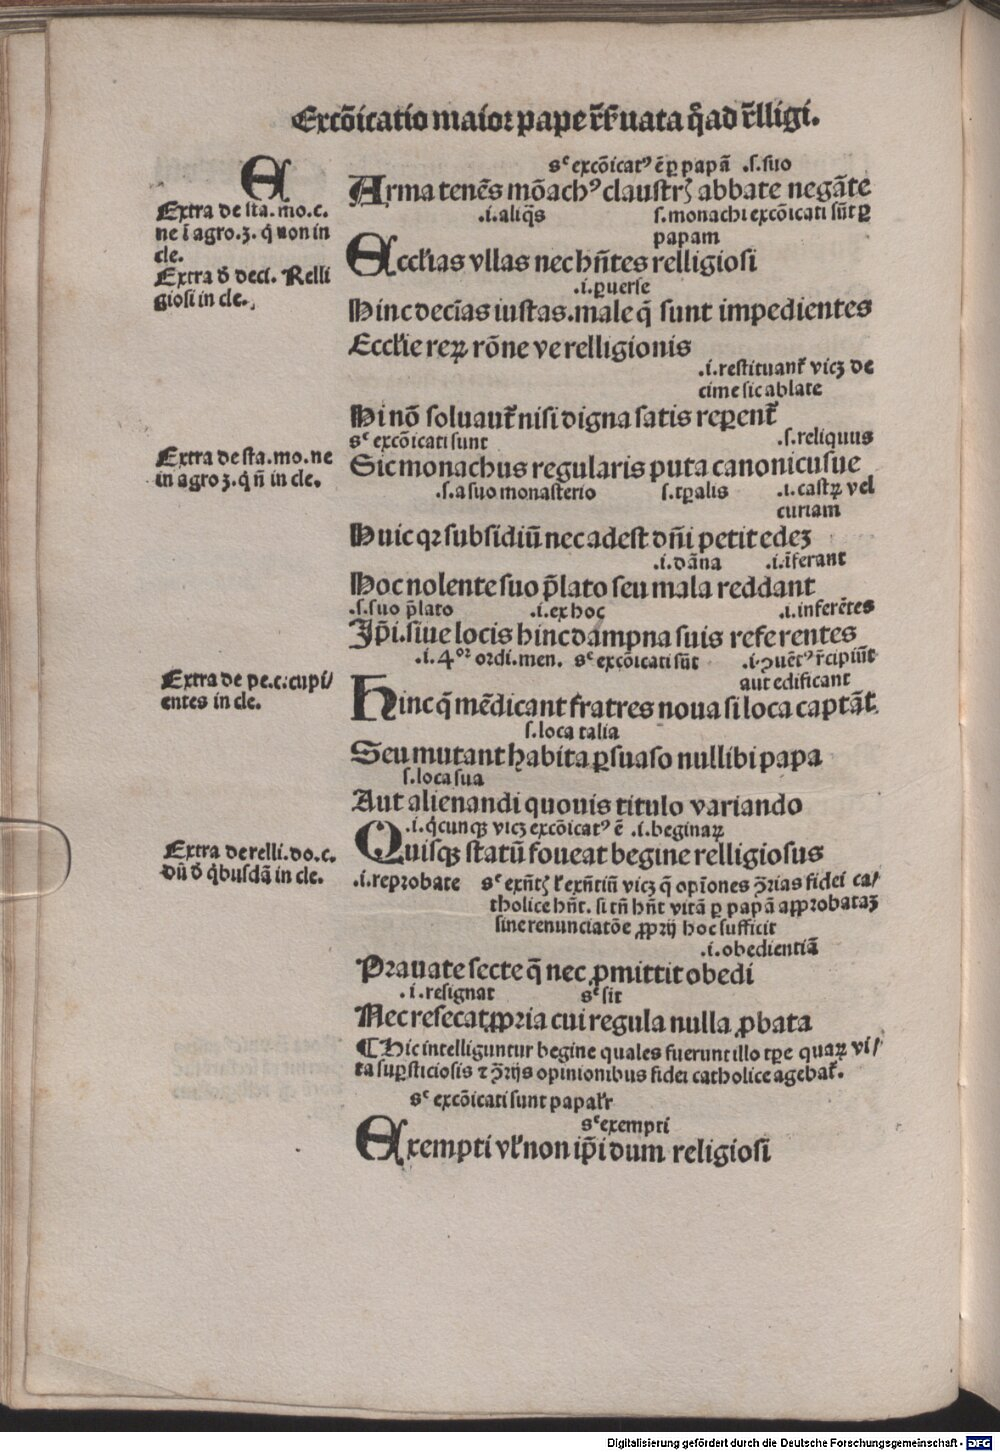 Excõicatio maior pape r̃ẜuata q̃ad r̃lligi.
E
Extra de sta.mo.c.
ne ĩ agro.ʒ. q̃ non in
cle.
Extra ð deci. Relli
giosi in cle.
Extra de sta.mo.ne
in agro ʒ. q̃ ñ in cle.
Extra de pe.c.cupi/
entes in cle.
Extra de relli.do.c.
dũ ð q̃busdã in cle.
sᶜ excõicatꝰ ẽ ꝑ papã .s.suo
Arma tenẽs mõachꝰ claustrꝭ abbate negãte
.i.aliq̃s s.monachi excõicati sũt ꝑ
papam
Eccl̃ias vllas nec hñtes relligiosi
.i.ꝑuerse
Hinc decĩas iustas.male q̃ sunt impedientes
Eccl̃ie reꝝ rõne ve relligionis
.i.restituant̃ vicꝫ de
cime sic ablate
Hi nõ soluaut̃ nisi digna satis reꝑent̃
sᶜ excõicati sunt .s.reliquus
Sic monachus regularis puta canonicusue
.s.a suo monasterio s.tꝑalis .i.castꝝ vel
curiam
Huic qꝛ subsidiũ nec adest dñi petit edeꝫ
.i.dãna .i.ĩferant
Hoc nolente suo p̃lato seu mala reddant
.s.suo p̃lato .i.ex hoc .i.inferẽtes
Ip̃i.siue locis hinc dampna suis referentes
.i.4ᵒʳ ordi.men. sᶜ excõicati sũt .i.ꝯuẽtꝰ r̃cipiũt
aut edificant
Hinc q̃ mẽdicant fratres noua si loca captãt.
s.loca talia
Seu mutant habita ꝑsuaso nullibi papa
s.loca sua
Aut alienandi quouis titulo variando
.i.q̃cunqꝫ vicꝫ excõicatꝰ ẽ .i.beginaꝝ
Quisqꝫ statũ foueat begine relligiosus
.i.reprobate sᶜ exñtꝭ ł exñtiũ vicꝫ q̃ opĩones ꝯ̃rias fidei ca/
tholice hñt. si tñ hñt vitã ꝑ papã aꝓprobataꝫ
sine renunciatõe ꝓprij hoc sufficit
.i.obedientiã
Prauate secte q̃ nec ꝓmittit obedi
.i.resignat sᶜ sit
Nec resecat ꝓpria cui regula nulla ꝓbata
¶ Hic intelliguntur begine quales fuerunt illo tꝑe quaꝝ vi/
ta suꝑsticiosis ⁊ ꝯ̃rijs opinionibus fidei catholice agebat̃.
sᶜ excõicati sunt papal̃r
sᶜ exempti
Exempti vł non ip̃i dum religiosi
Digitalisierung gefördert durch die Deutsche Forschungsgemeinschaft - DFG